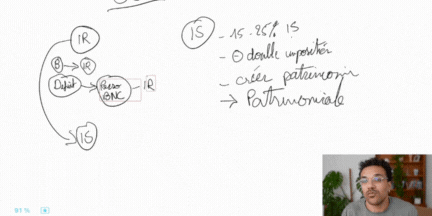 IR
IS
- 15 - 25% IS
- θ double imposition
θ → IR
- créer patrimoine
Déficit
Perso
BNC
- IR
→ Patrimoniale
IS
91 %